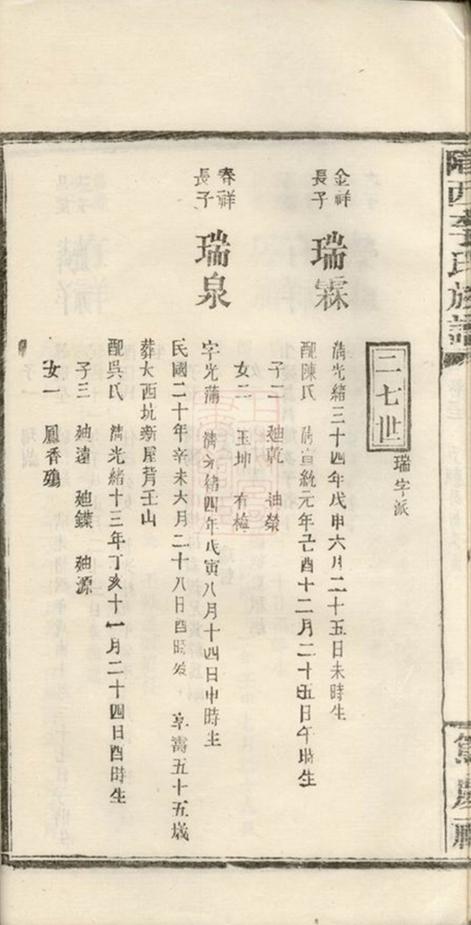 隴西李氏族譜
二七世
瑞字派
金祥
長子
瑞霖
清光緒三十四年戊申六月二十五日未時生
配陳氏 清宣統元年己酉十二月二十五日午時生
子二 廸乾 廸榮
女二 玉坤 有梅
春祥
長子
瑞泉
字光蒲 清光緒四年戊寅八月十四日申時生
民國二十年辛未六月二十八日酉時歿 享壽五十五歲
葬大西坑新屋背壬山
配吳氏 清光緒十三年丁亥十一月二十四日酉時生
子三 廸遠 廸鏷 廸源
女一 鳳香殤